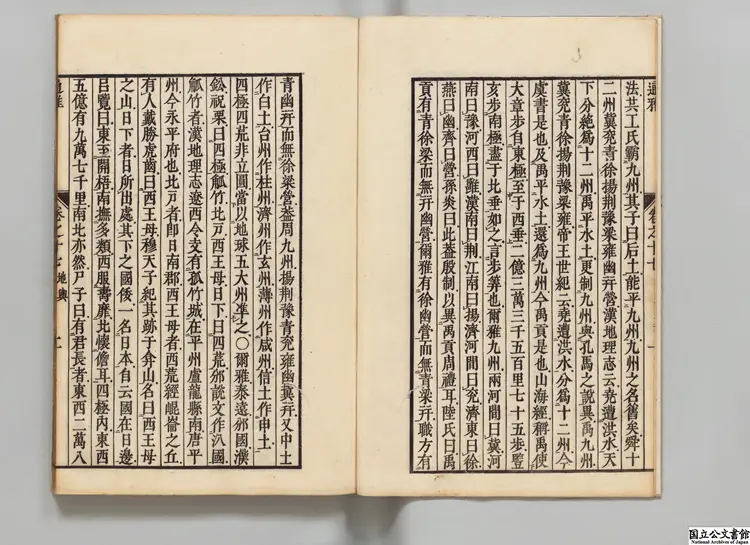 通雅 卷之十七 一
法共工氏霸九州其子曰后土能平九州九州之名舊矣舜十
二州冀兗青徐揚荆豫梁雍幽幷營漢地理志云堯遭洪水天
下分絶爲十二州禹平水土更制九州與孔馬之說異禹九州
冀兗青徐揚荆豫梁雍帝王世紀云堯遭洪水分爲十二州今
虞書是也及禹平水土還爲九州今禹貢是也山海經稱禹使
大章步自東極至于西垂二億三萬三千五百里七十五步豎
亥步南極盡于北垂如之言步筭也爾雅九州兩河間曰冀河
南曰豫河西曰雝漢南曰荆江南曰揚濟河間曰兗濟東曰徐
燕曰幽齊曰營孫炎曰此葢殷制以異禹貢周禮耳陸氏曰禹
貢有青徐梁而無幷幽營爾雅有徐幽營而無青梁幷職方有
青幽幷而無徐梁營葢周九州揚荆豫青兗雍幽冀幷又中土
作白土台州作柱州濟州作玄州薄州作咸州信土作申土
四極四荒非立圜當以地球五大州凖之〇爾雅泰遠邠國濮
鈆祝栗曰四極觚竹北戸西王母日下曰四荒邠說文作汃國
觚竹者漢地理志遼西令支有孤竹城在平州盧龍縣南唐平
州今永平府也北戸者即日南郡西王母者西荒經崐崘之丘
有人戴勝虎齒曰西王母穆天子紀其跡于弇山名曰西王母
之山日下者日所出處其下之國倭一名日本自云國在日邊
呂覽曰東至開梧南撫多類西服壽靡北懷儋耳四極內東西
五億有九萬七千里南北亦然尸子曰有君長者東西二萬八
通雅 卷之十七 地輿 二
国立公文書館
National Archives of Japan